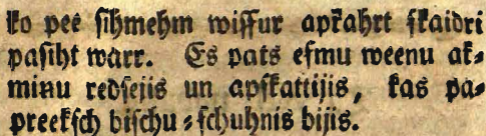 ko pee ſihmehm wiſſur apkahrt ſkaidri
paſiht warr. Es pats eſmu weenu ak⸗
minu redſejis un apſkattijis, kas pa⸗
preekſch biſchu⸗ſchuhnis bijis.